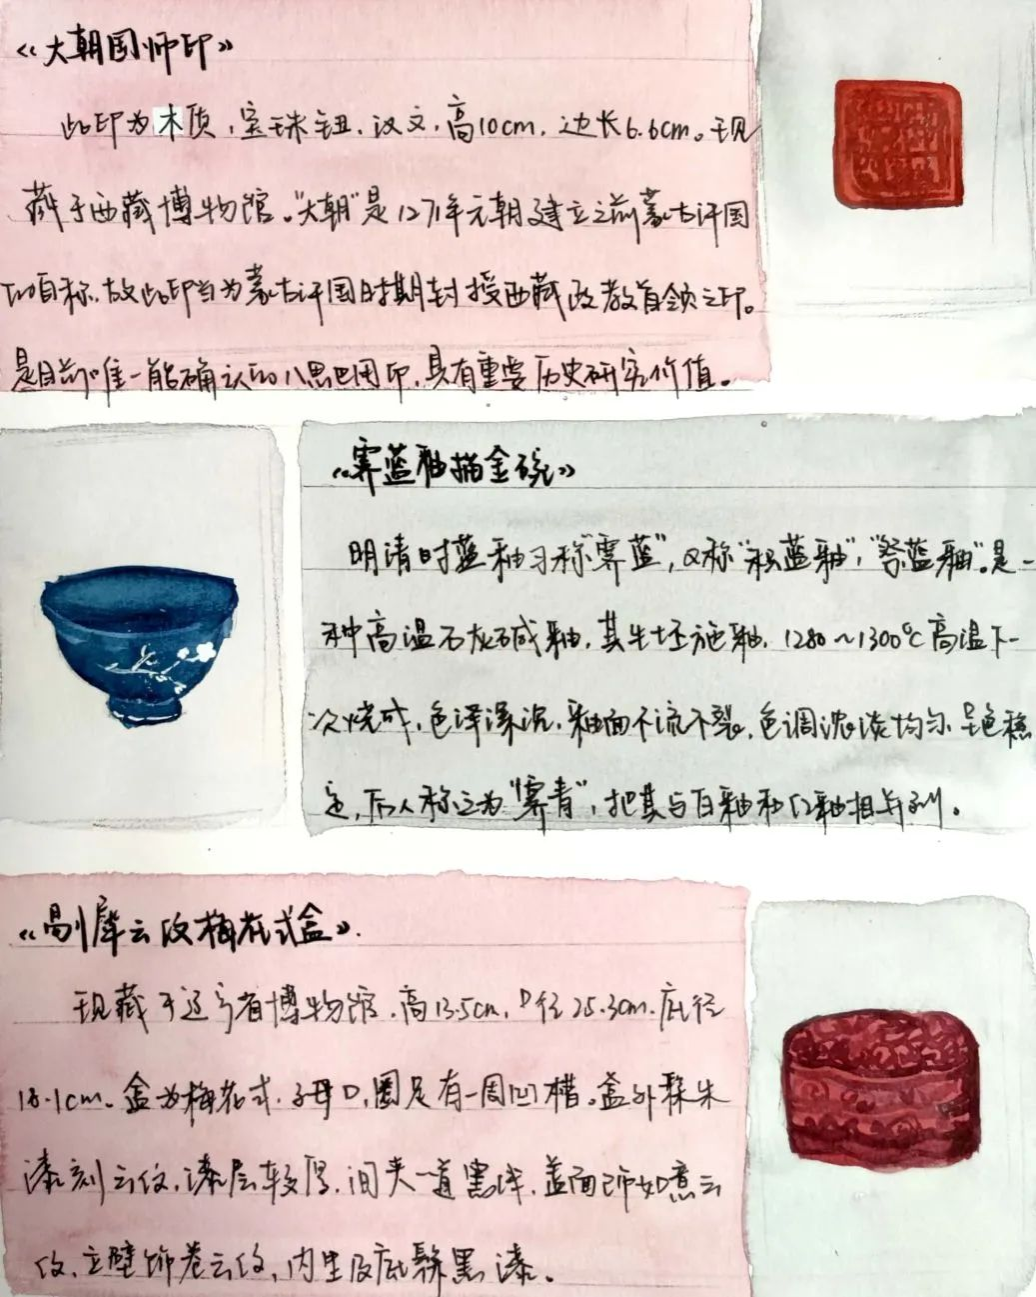 《大朝国师印》
此印为木质，宝珠钮，汉文，高10cm，边长6.6cm。现
藏于西藏博物馆。“大朝”是1271年元朝建立之前蒙古汗国
的自称，故此印当为蒙古汗国时期封授西藏政教首领之印。
是目前唯一能确认的八思巴用印，具有重要历史研究价值。
《霁蓝釉描金碗》
明清时蓝釉习称“霁蓝”，又称“积蓝釉”，“祭蓝釉”。是一
种高温石灰碱釉，其生坯施釉，1280～1300℃高温下一
次烧成，色泽深沉，釉面不流不裂，色调浓淡均匀，呈色稳
定，后人称之为“霁青”，把其与白釉和红釉相并列。
《剔犀云纹梅花式盒》.
现藏于辽宁省博物馆，高13.5cm，口径25.3cm，底径
18.1cm。盒为梅花式，子母口，圈足有一周凹槽。盒外髹朱
漆刻云纹，漆层较厚，间夹一道黑线，盖面饰如意云
纹，立壁饰卷云纹，内里及底髹黑漆。